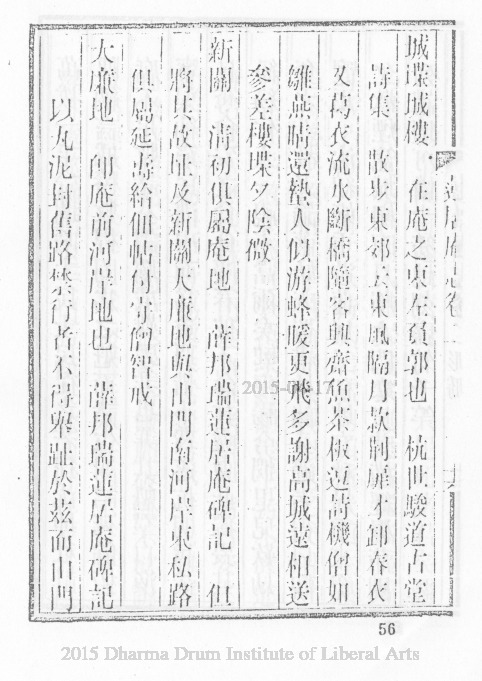 城堞城樓　在庵之東左負郭也　杭世駿道古堂
詩集　散步東郊云東風隔月款荆扉才卸春衣
又葛衣流水斷橋隨客興齋魚茶板逗詩機僧如
雛燕晴還蟄人似游蜂暖更飛多謝高城遠相送
參差樓堞夕陰微
新關　清初俱屬庵地　薛邦瑞蓮居庵碑記　但
將其故址及新關大廠地與山門南河岸東私路
俱屬延壽給佃帖付寺僧智戒
大廠地　卽庵前河岸地也　薛邦瑞蓮居庵碑記
以丸泥封舊路禁行者不得舉趾於茲而山門
蓮居庵志卷二
56
2015 Dharma Drum Institute of Liberal Arts